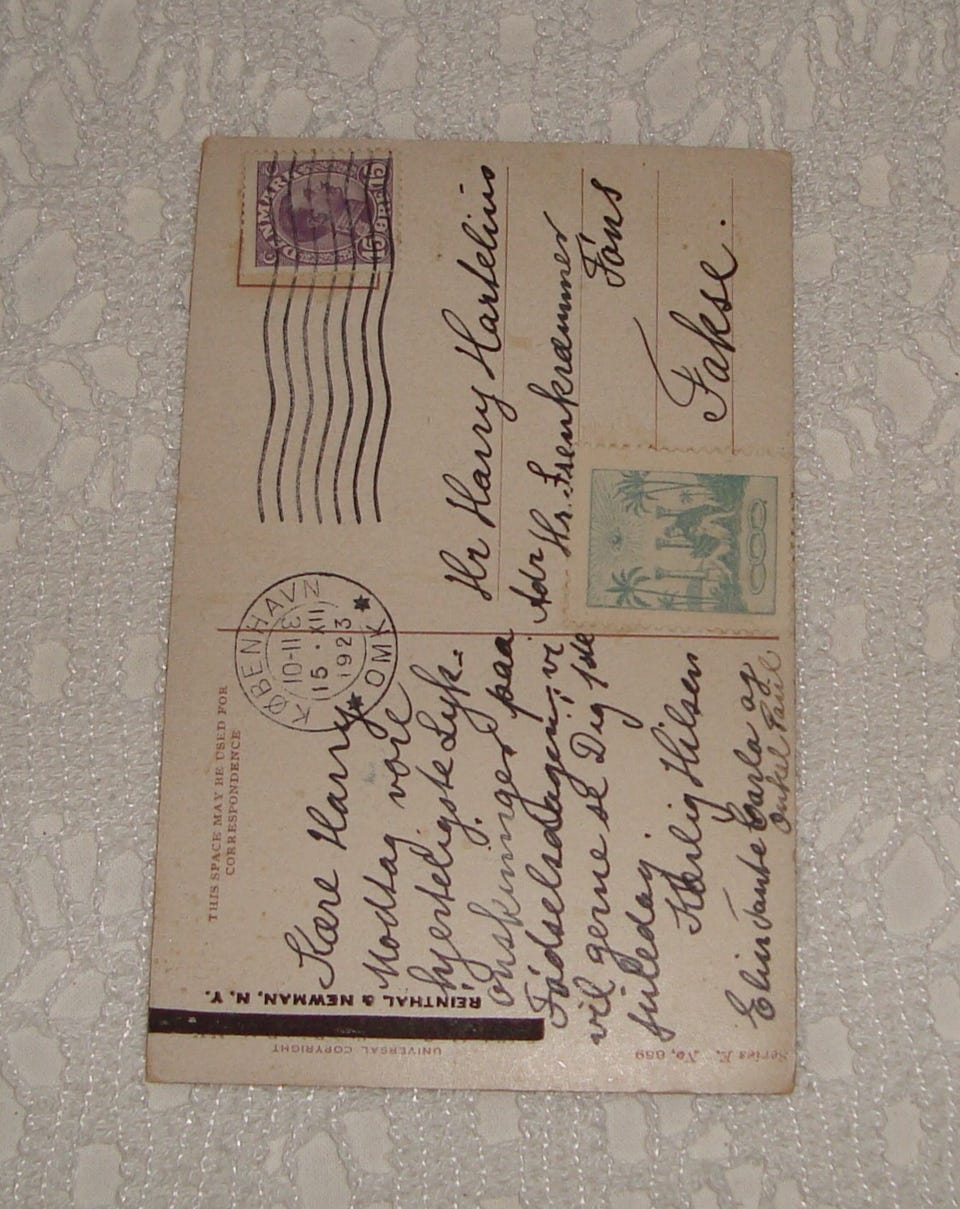 THIS SPACE MAY BE USED FOR
CORRESPONDENCE
KØBENHAVN
OMK
10-11 E
15. XII
1923
DANMARK
15 ØRE 15
Kære Harry
Modtag vore
hjerteligste Lyk-
ønskninger paa
Fødselsdagen, vi
vil gerne se Dig 1ste
juledag.
Kærlig Hilsen
Elin Tante Carla og
Onkel Paul
Hr Harry Hartelius
Adr Hr. Isenkræmmer
Föns
Fakse.
REINTHAL & NEWMAN, N. Y.
UNIVERSAL COPYRIGHT
Series E. No, 689